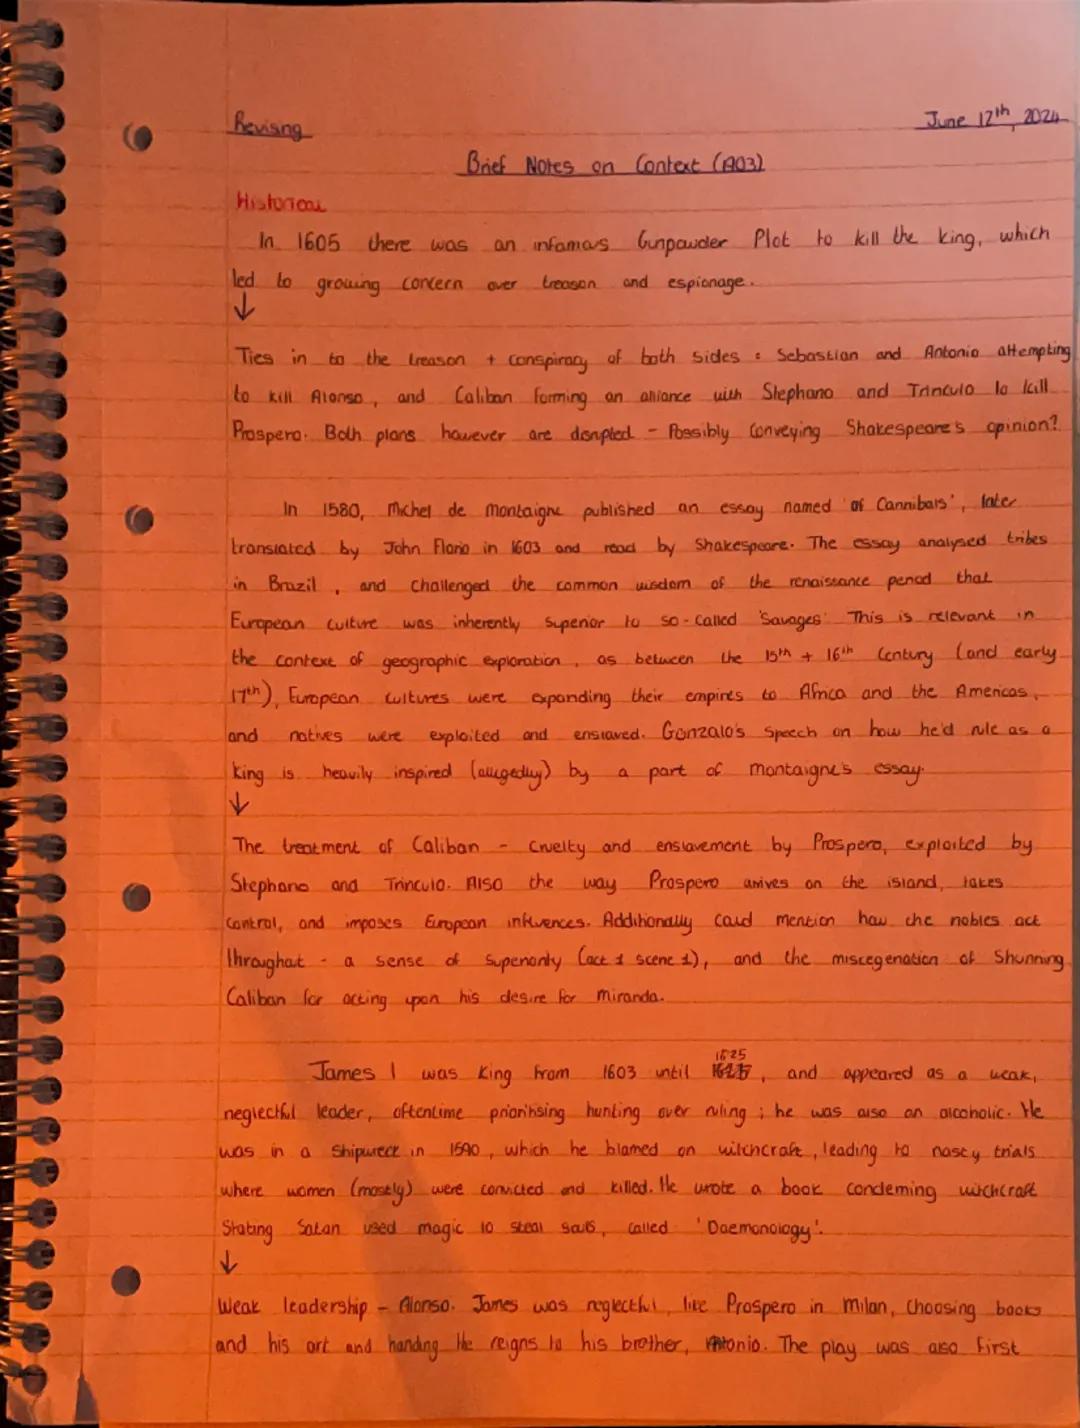 Revising
June 12th, 2024
Brief Notes on Context (AO3)
Historical
In 1605 there was an infamous Gunpowder Plot to kill the king, which
led to growing concern over treason and espionage.
↓
Ties in to the treason + conspiracy of both sides : Sebastian and Antonio attempting
to kill Alonso, and Caliban forming an alliance with Stephano and Trinculo to kill
Prospero. Both plans however are disrupted - Possibly conveying Shakespeare's opinion?
In 1580, Michel de Montaigne published an essay named 'Of Cannibals', later
translated by John Florio in 1603 and read by Shakespeare. The essay analysed tribes
in Brazil, and challenged the common wisdom of the renaissance period that
European culture was inherently superior to so-called 'Savages'. This is relevant in
the context of geographic exploration, as between the 15th + 16th Century (and early
17th), European cultures were expanding their empires to Africa and the Americas,
and natives were exploited and enslaved. Gonzalo's speech on how he'd rule as a
king is heavily inspired (allegedly) by a part of Montaigne's essay.
↓
The treatment of Caliban - Cruelty and enslavement by Prospero, exploited by
Stephano and Trinculo. Also the way Prospero arrives on the island, takes
control, and imposes European influences. Additionally could mention how the nobles act
throughout - a sense of superiority (act 1 scene 1), and the miscegenation of Shunning
Caliban for acting upon his desire for Miranda.
James I was King from 1603 until 1625, and appeared as a weak,
neglectful leader, oftentime prioritising hunting over ruling ; he was also an alcoholic. He
was in a Shipwreck in 1590, which he blamed on witchcraft, leading to nasty trials
where women (mostly) were convicted and killed. He wrote a book condeming witchcraft
Stating Satan used magic to steal souls, called 'Daemonology'.
↓
Weak leadership - Alonso. James was neglectful, like Prospero in Milan, Choosing books
and his art and handing the reigns to his brother, Antonio. The play was also first